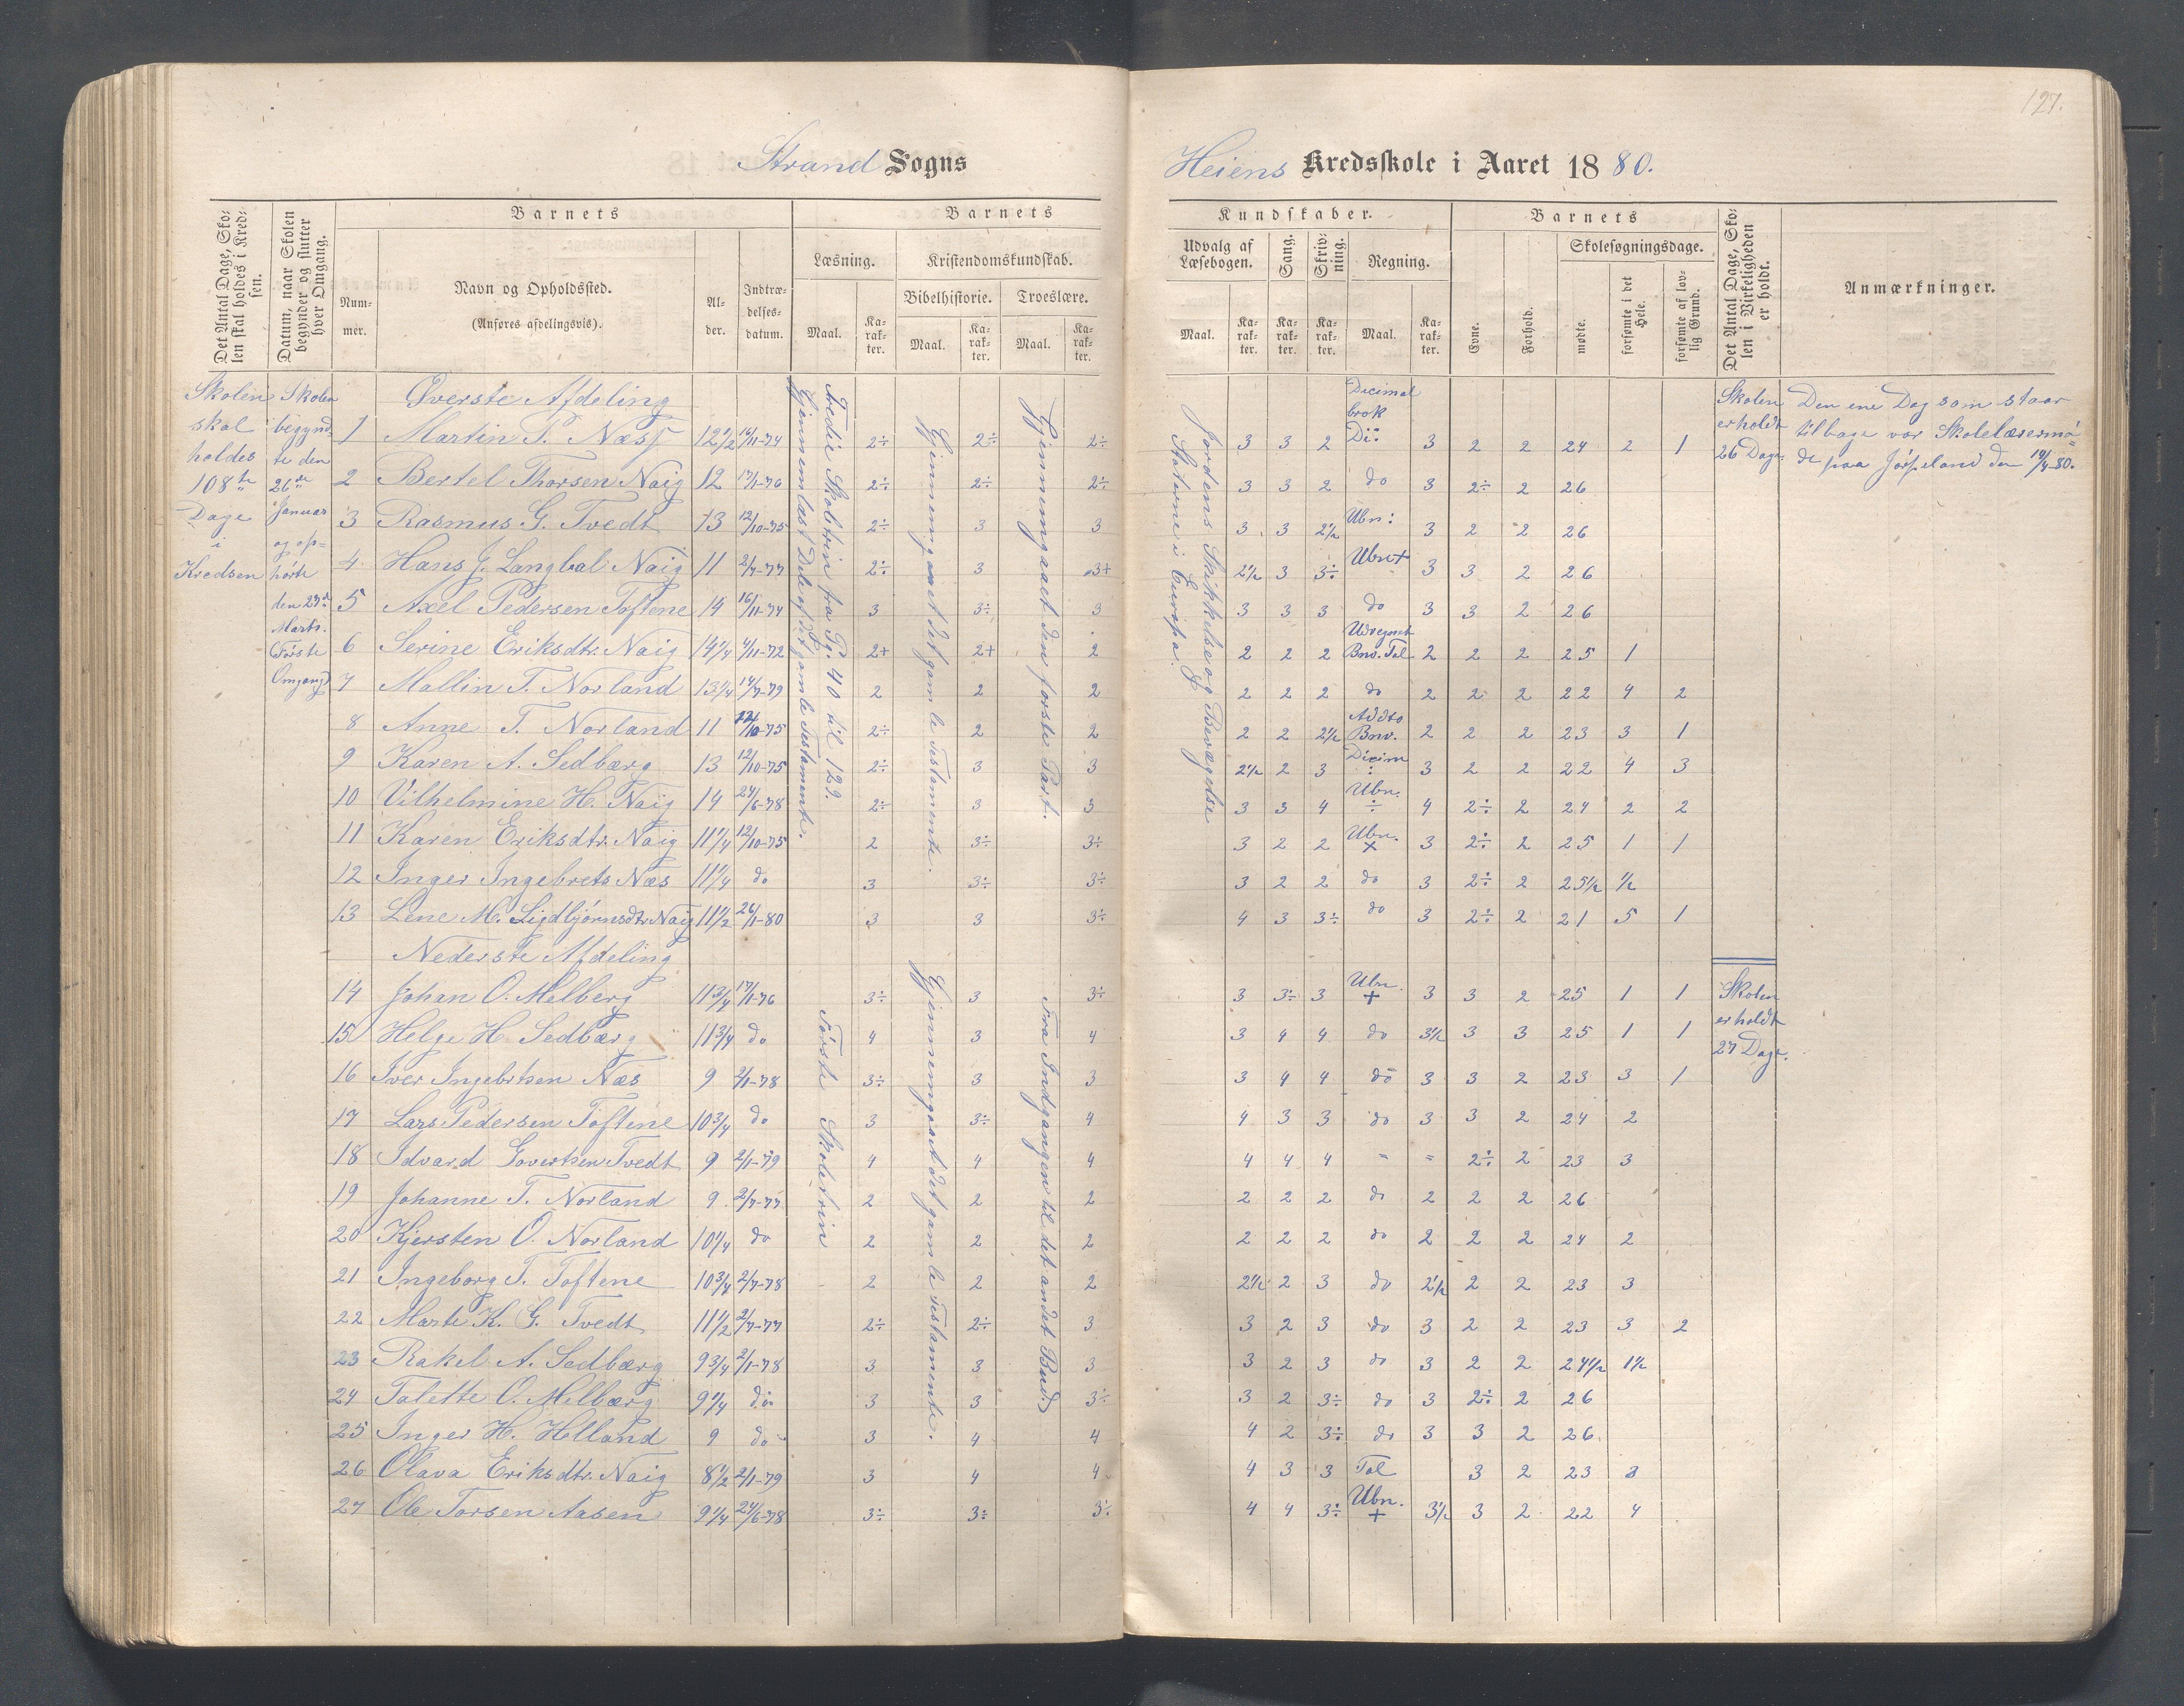 127.
Strand Sogns
Heiens Kredsskole i Aaret 1880.
Det Antal Dage, Skolen skal holdes i Kredsen.
Datum, naar Skolen begynder og slutter hver Omgang.
Barnets
Nummer.
Navn og Opholdssted.
(Anføres afdelingsvis).
Alder.
Indtrædelsesdatum.
Barnets
Læsning.
Maal.
Karakter.
Kristendomskundskab.
Bibelhistorie.
Maal.
Karakter.
Troeslære.
Maal.
Karakter.
Kundskaber.
Udvalg af Læsebogen.
Maal.
Karakter.
Sang.
Karakter.
Skrivning.
Karakter.
Regning.
Maal.
Karakter.
Barnets
Evne.
Forhold.
Skolesøgningsdage.
mødte.
forsømte i det Hele.
forsømte af lovlig Grund.
Det Antal Dage, Skolen i Virkeligheden er holdt.
Anmærkninger.
Skolen skal holdes 108te Dage i Kredsen
Skolen begyndte den 26de Januar og ophørte den 27de Marts. Første Omgang
Tredie Skoletrin fra Pg. 40 til 129.
Gjennemlæst Dele af det gamle Testamente.
Gjennemgaaet det gamle Testamente.
Gjennemgaaet den første Part.
Jordens Skikkelse og Bevægelse
Staterne i Europa.
Øverste Afdeling
1 Martin P. Næss 12 1/2 16/11-74 2÷ 2÷ 2÷ 3 3 2 Decimal brok Di: 3 2 2 24 2 1
2 Bertel Thorsen Naig 12 17/1-76 2÷ 2÷ 2÷ 3 3 2 do 3 2÷ 2 26
3 Rasmus G. Tvedt 13 12/10-75 2÷ 3 3 3 3 2 1/2 Ubn: 3 2 2 26
4 Hans J. Langbal Naig 11 2/7-77 2÷ 3 3+ 2 1/2 3 3÷ Ubn+ 3 3 2 26
5 Axel Pedersen Toftene 14 16/11-74 3 3÷ 3 3 3 3 do 3 3 2 26
6 Serine Eriksdtr. Naig 14 1/4 4/11-72 2+ 2+ 2 2 2 2 Bnv. Tal 2 2 2 25 1
7 Mallin T. Norland 13 1/4 14/7-79 2 2 2 2 2 2 do 2 2 2 22 4 2
8 Anne T. Norland 11 12/10-75 2÷ 2 2 2 2 2 1/2 Adds Bnv. 2 2 2 23 3 1
9 Karen A. Sedbærg 13 12/10-75 2÷ 3 3 2 1/2 2 3 Decim : 3 2 2 22 4 3
10 Vilhelmine H. Naig 14 24/6-78 2÷ 3 3 3 3 4 Ubn. ÷ 4 2÷ 2 24 2 2
11 Karen Eriksdtr. Naig 11 1/4 12/10-75 2 3÷ 3÷ 3 2 2 Ubn. × 3 2÷ 2 25 1 1
12 Inger Ingebrets Næs 11 1/4 do 3 3÷ 3÷ 3 2 2 do 3 2÷ 2 25 1/2 1/2
13 Lene M. Ligdbjørnsdtr. Naig 11 1/2 26/1-80 3 3 3÷ 4 3 3÷ do 3 2÷ 2 21 5 1
Skolen er holdt 26 Dage.
Den ene Dag som staar
tilbage var Skolelæsermø-
de paa Jørpeland den 19/4-80.
Nederste Afdeling
Første Skoletrin
Gjennemgaaet det gamle Testamente.
Fra Indgangen til det andet Bud.
14 Johan O. Melberg 11 3/4 17/1-76 3÷ 3 3÷ 3 3÷ 3 Ubn. + 3 3 2 25 1 1
15 Helge H. Sedbærg 11 3/4 do 4 3 4 3 4 4 do 3 1/2 3 3 25 1 1
16 Iver Ingebrtsen Næs 9 2/1-78 3÷ 3 3 3 4 4 do 3 3 2 23 3 1
17 Lars Pedersen Toftene 10 3/4 do 3 3÷ 4 4 3 3 do 3 3 2 24 2
18 Edvard Govertsen Tvedt 9 2/1-79 4 4 4 4 4 4 " " 2÷ 2 23 3
19 Johanne T. Norland 9 2/7-77 2 2 2 2 2 2 do 2 2 2 26
20 Kjersten O. Norland 10 1/4 do 2 2 2 2 2 2 do 2 2 2 24 2
21 Ingeborg T. Toftene 10 3/4 2/7-78 2 2 2 2 1/2 2 3 do 2 1/2 2 2 23 3
22 Marte K. G. Tvedt 11 1/2 2/7-77 2÷ 2÷ 3 3 2 3 do 3 2 2 23 3 2
23 Rakel A. Sedbærg 9 3/4 2/1-78 3 3 3 3 2 3 do 3 2 2 24 1/2 1 1/2
24 Talette O. Melbærg 9 1/4 do 3 3 3÷ 3 2 3÷ do 3 2÷ 2 26
25 Inger H. Helland 9 do 3 4 4 4 2 3÷ do 3 3 2 26
26 Olava Eriksdtr. Naig 8 1/2 2/1-79 3 4 4 4 3 3 Tal 3 2 23 3
27 Ole Torsen Aasen 9 1/4 24/6-78 3÷ 3÷ 3÷ 4 4 3÷ Ubn. + 3 1/2 3 2 22 4
Skolen er holdt 27 Dage.